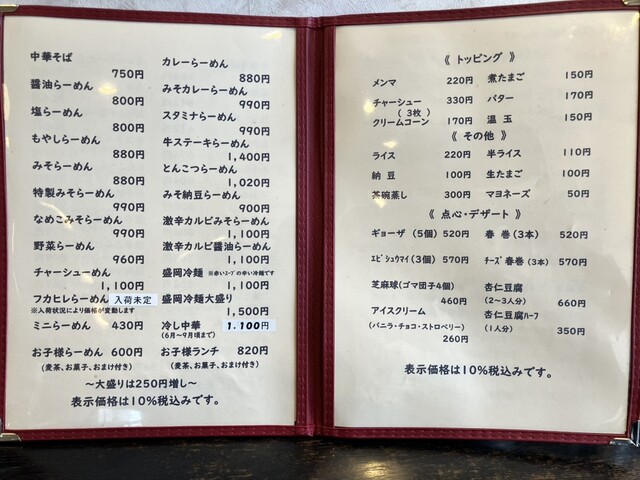 中華そば
750円
醤油らーめん
800円
塩らーめん
800円
もやしらーめん
880円
みそらーめん
880円
特製みそらーめん
990円
なめこみそらーめん
990円
野菜らーめん
960円
チャーシューめん
1,100円
フカヒレらーめん 入荷未定
※入荷状況により価格が変動します
ミニらーめん 430円
お子様らーめん 600円
(麦茶、お菓子、おまけ付き)
カレーらーめん
880円
みそカレーらーめん
990円
スタミナらーめん
990円
牛ステーキらーめん
1,400円
とんこつらーめん
1,020円
みそ納豆らーめん
900円
激辛カルビみそらーめん
1,100円
激辛カルビ醤油らーめん
1,100円
盛岡冷麺 ※赤いスープの辛い冷麺です
1,100円
盛岡冷麺大盛り
1,500円
冷し中華 1,100円
(6月~9月頃まで)
お子様ランチ 820円
(麦茶、お菓子、おまけ付き)
~大盛りは250円増し~
表示価格は10%税込みです。
《 トッピング 》
メンマ 220円 煮たまご 150円
チャーシュー 330円 バター 170円
( 3枚 )
クリームコーン 170円 温玉 150円
《 その他 》
ライス 220円 半ライス 110円
納豆 100円 生たまご 100円
茶碗蒸し 300円 マヨネーズ 50円
《 点心・デザート 》
ギョーザ (5個) 520円 春巻(3本) 520円
エビシュウマイ(3個) 570円 チーズ春巻(3本) 570円
芝麻球(ゴマ団子4個) 杏仁豆腐
460円 (2~3人分) 660円
アイスクリーム 杏仁豆腐ハーフ
(バニラ・チョコ・ストロベリー) (1人分) 350円
260円
表示価格は10%税込みです。